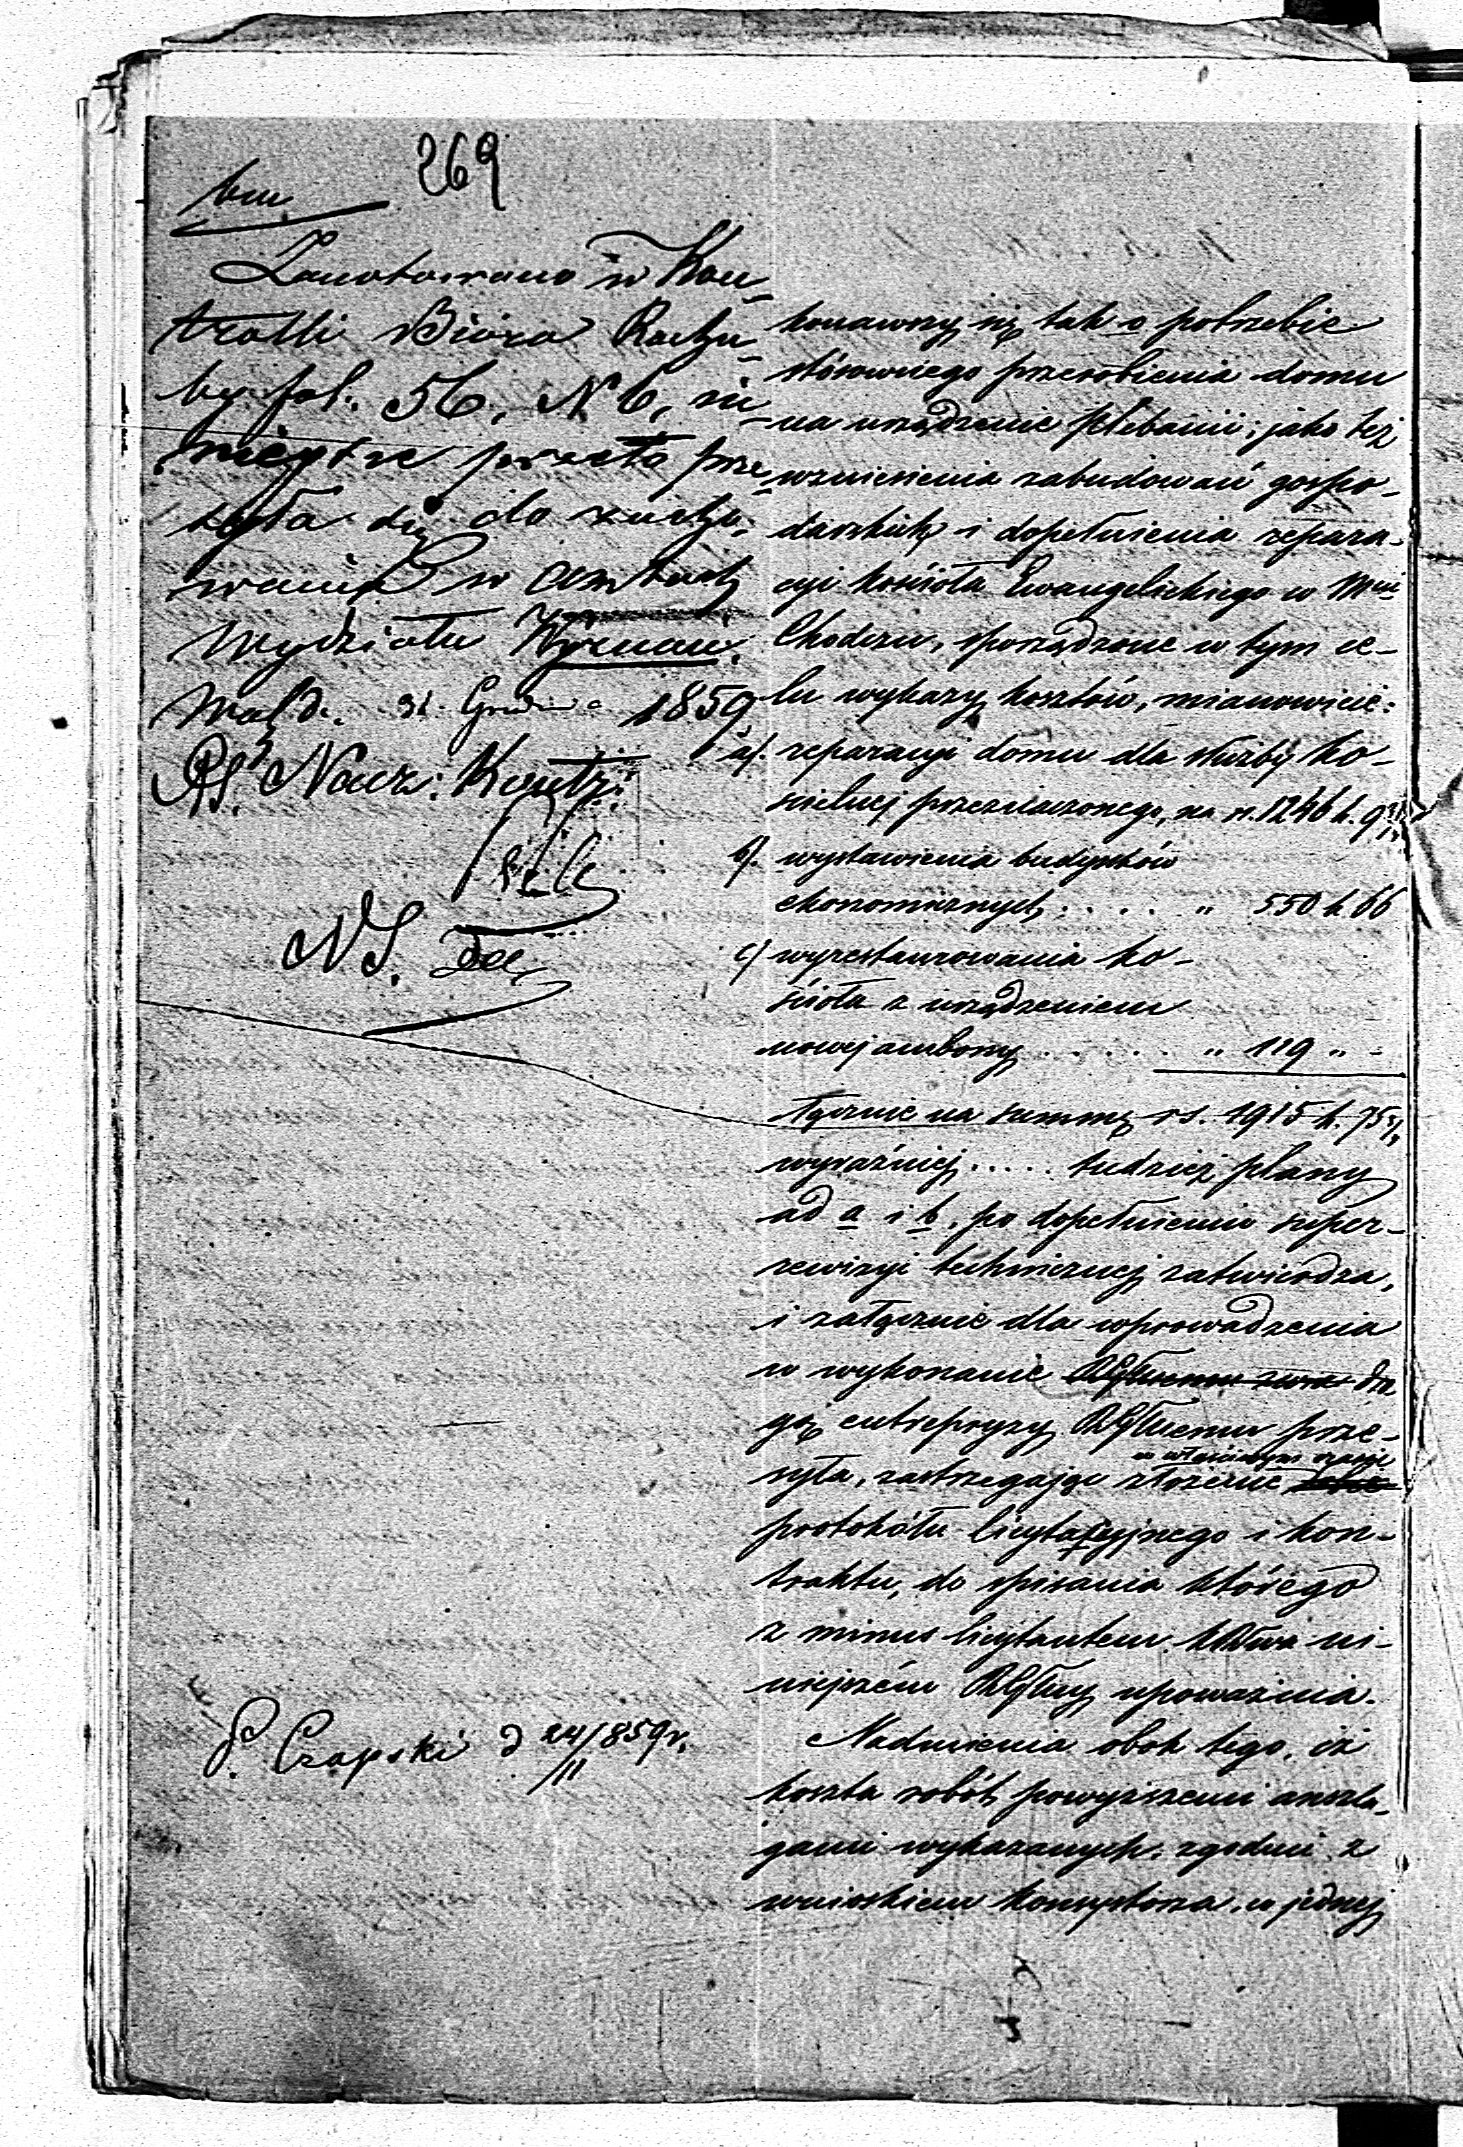 269
bm
Zanotowano w Kon-
trolli Biura Rachu-
by fol. 56, N 6, ni-
niejsze przeto prze-
syła się do zacho-
wania w aktach
Wydziału Wyznań.
Wa d. 31 Grudnia 1859
Nacz: Kontr:
NS.
P. Czapski d 24/11 859 r.
konawszy się tak o potrzebie
stósownego przerobienia domu
na urządzenie plebanii; jako też
wzniesienia zabudowań gospo-
darskich i dopełnienia repara-
cyi kościoła Ewangelickiego w Mieś
Chodczu, sporządzone w tym ce-
lu wykazy kosztów, mianowicie:
a/. reparacyi domu dla służby ko-
ścielnej przeznaczonego, na rs. 1246 k. 9
b/. wystawienia budynków
ekonomicznych . . . . " 550 k. 66
c/ wyrestaurowania ko-
ścioła z urządzeniem
nowej ambony . . . . . . " 119 " -
łącznie na summę rs. 1915 k. 75
wyraźniej ..... tudzież plany
ad a i b, po dopełnieniu super-
rewizyi technicznej zatwierdza,
i załącznie dla wprowadzenia
w wykonanie dro
gą entrepryzy RGłnemu prze-
w właściwym czasie
syła, zastrzegając złożenie
protokółu licytacyjnego i kon-
traktu, do spisania którego
z minus licytantem KRwa ni-
niejszém RGłny upoważnia.
Nadmienia obok tego, iż
koszta robót powyższemi anszla-
gami wykazanych, zgodnie z
wnioskiem Konsystorza, w jednej